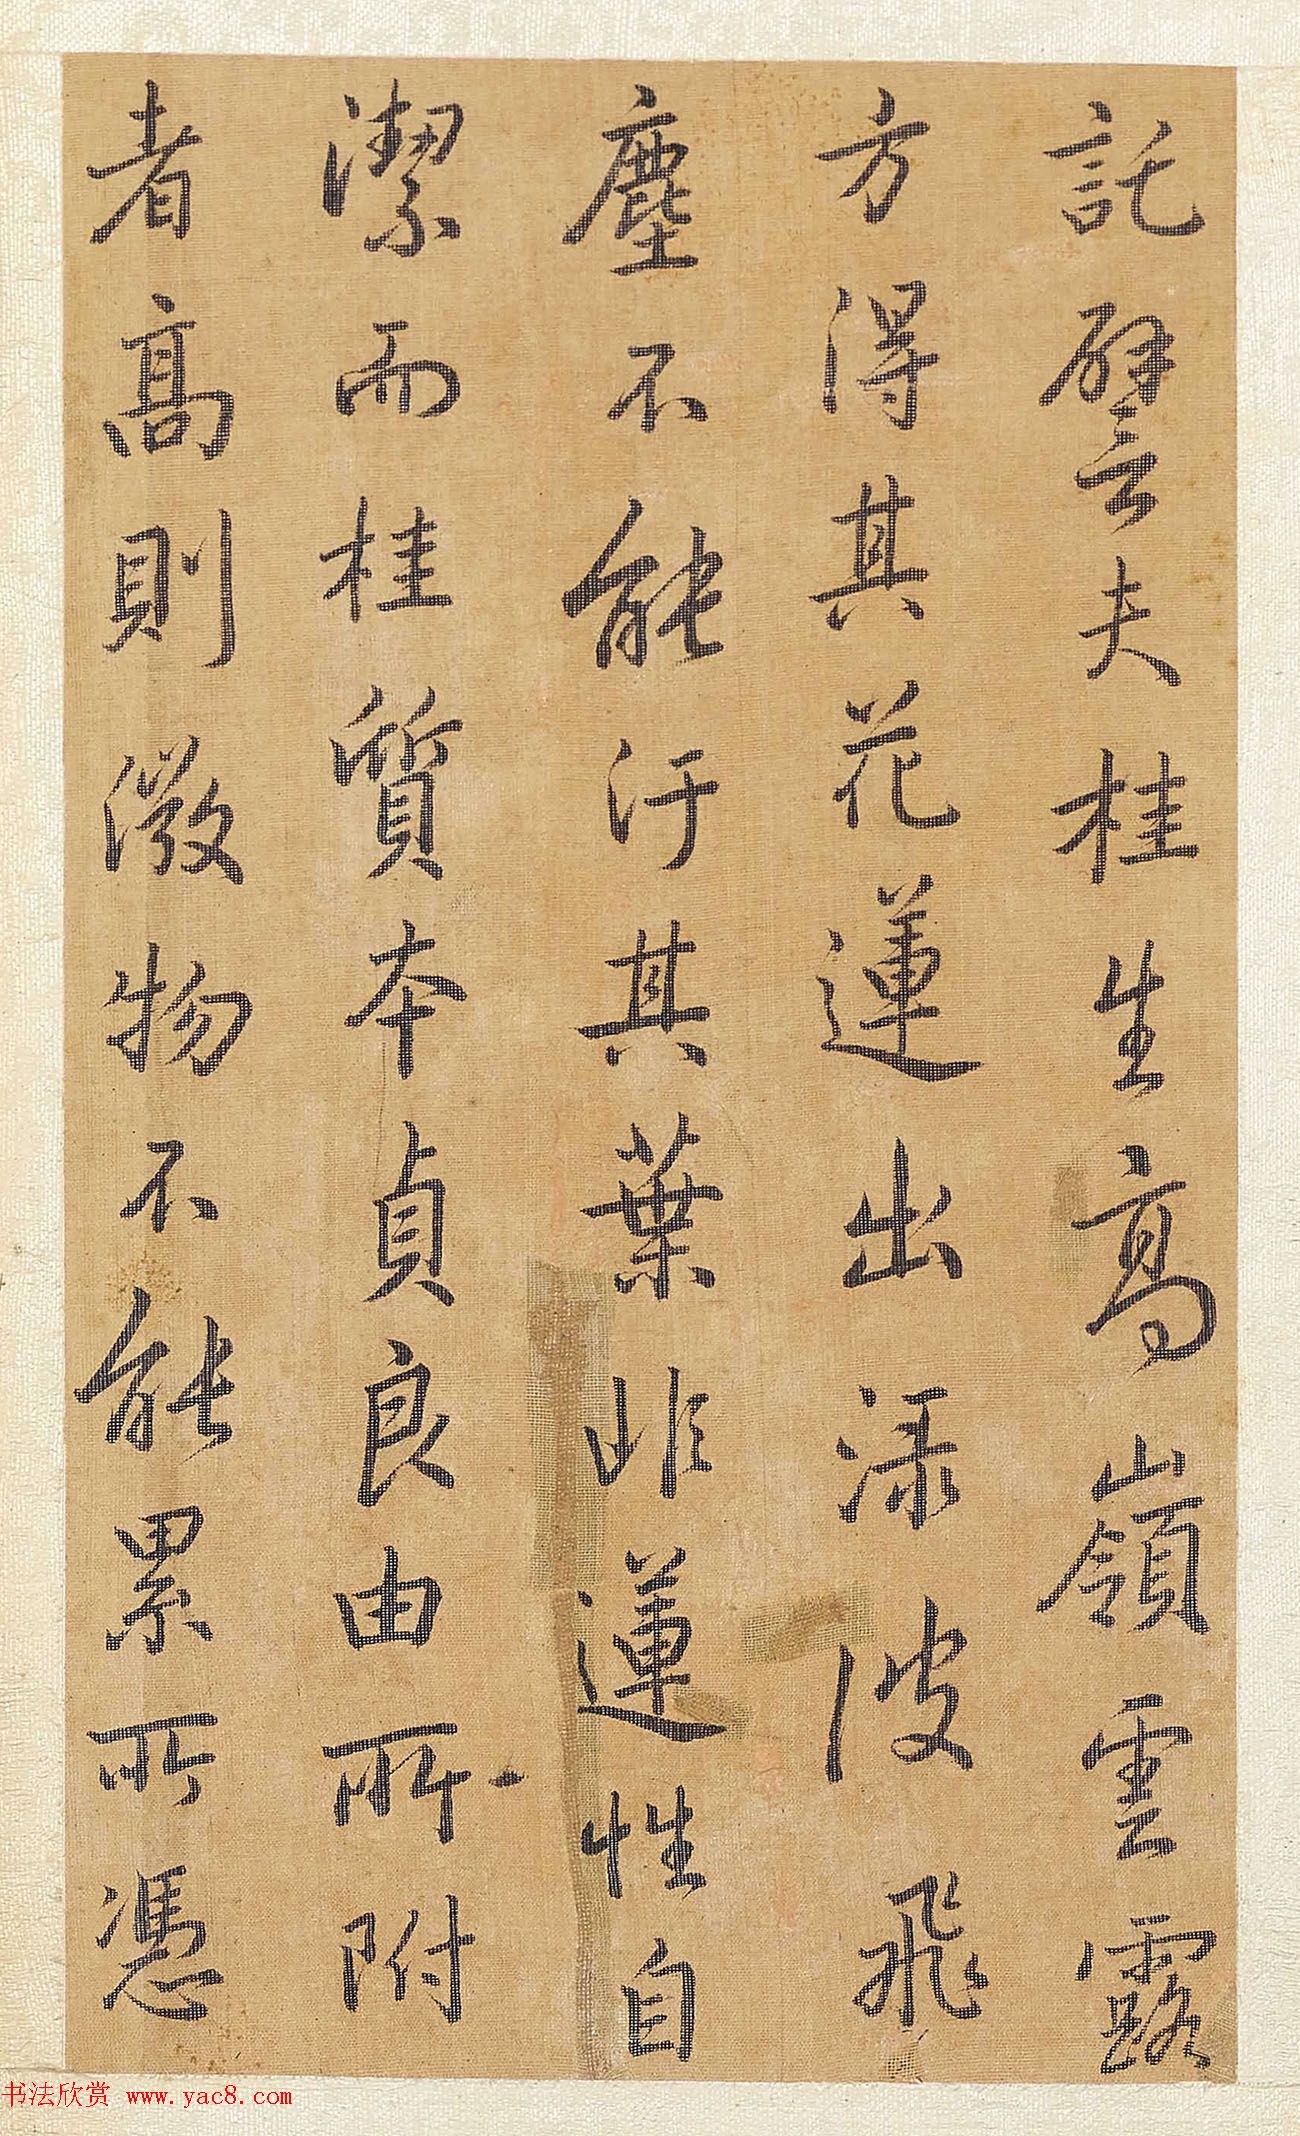 託譬夫桂生高嶺雲露
方得其花蓮出淥波飛
塵不能汙其葉非蓮性自
潔而桂質本貞良由所附
者高則微物不能累所憑
书法欣赏 www.yac8.com